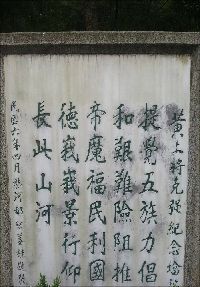 黄上将克强纪念塔
提覺五族力倡
和艱難險阻推
帝魔福民利國
德峩峩景行仰
長此山河
民國六年四月